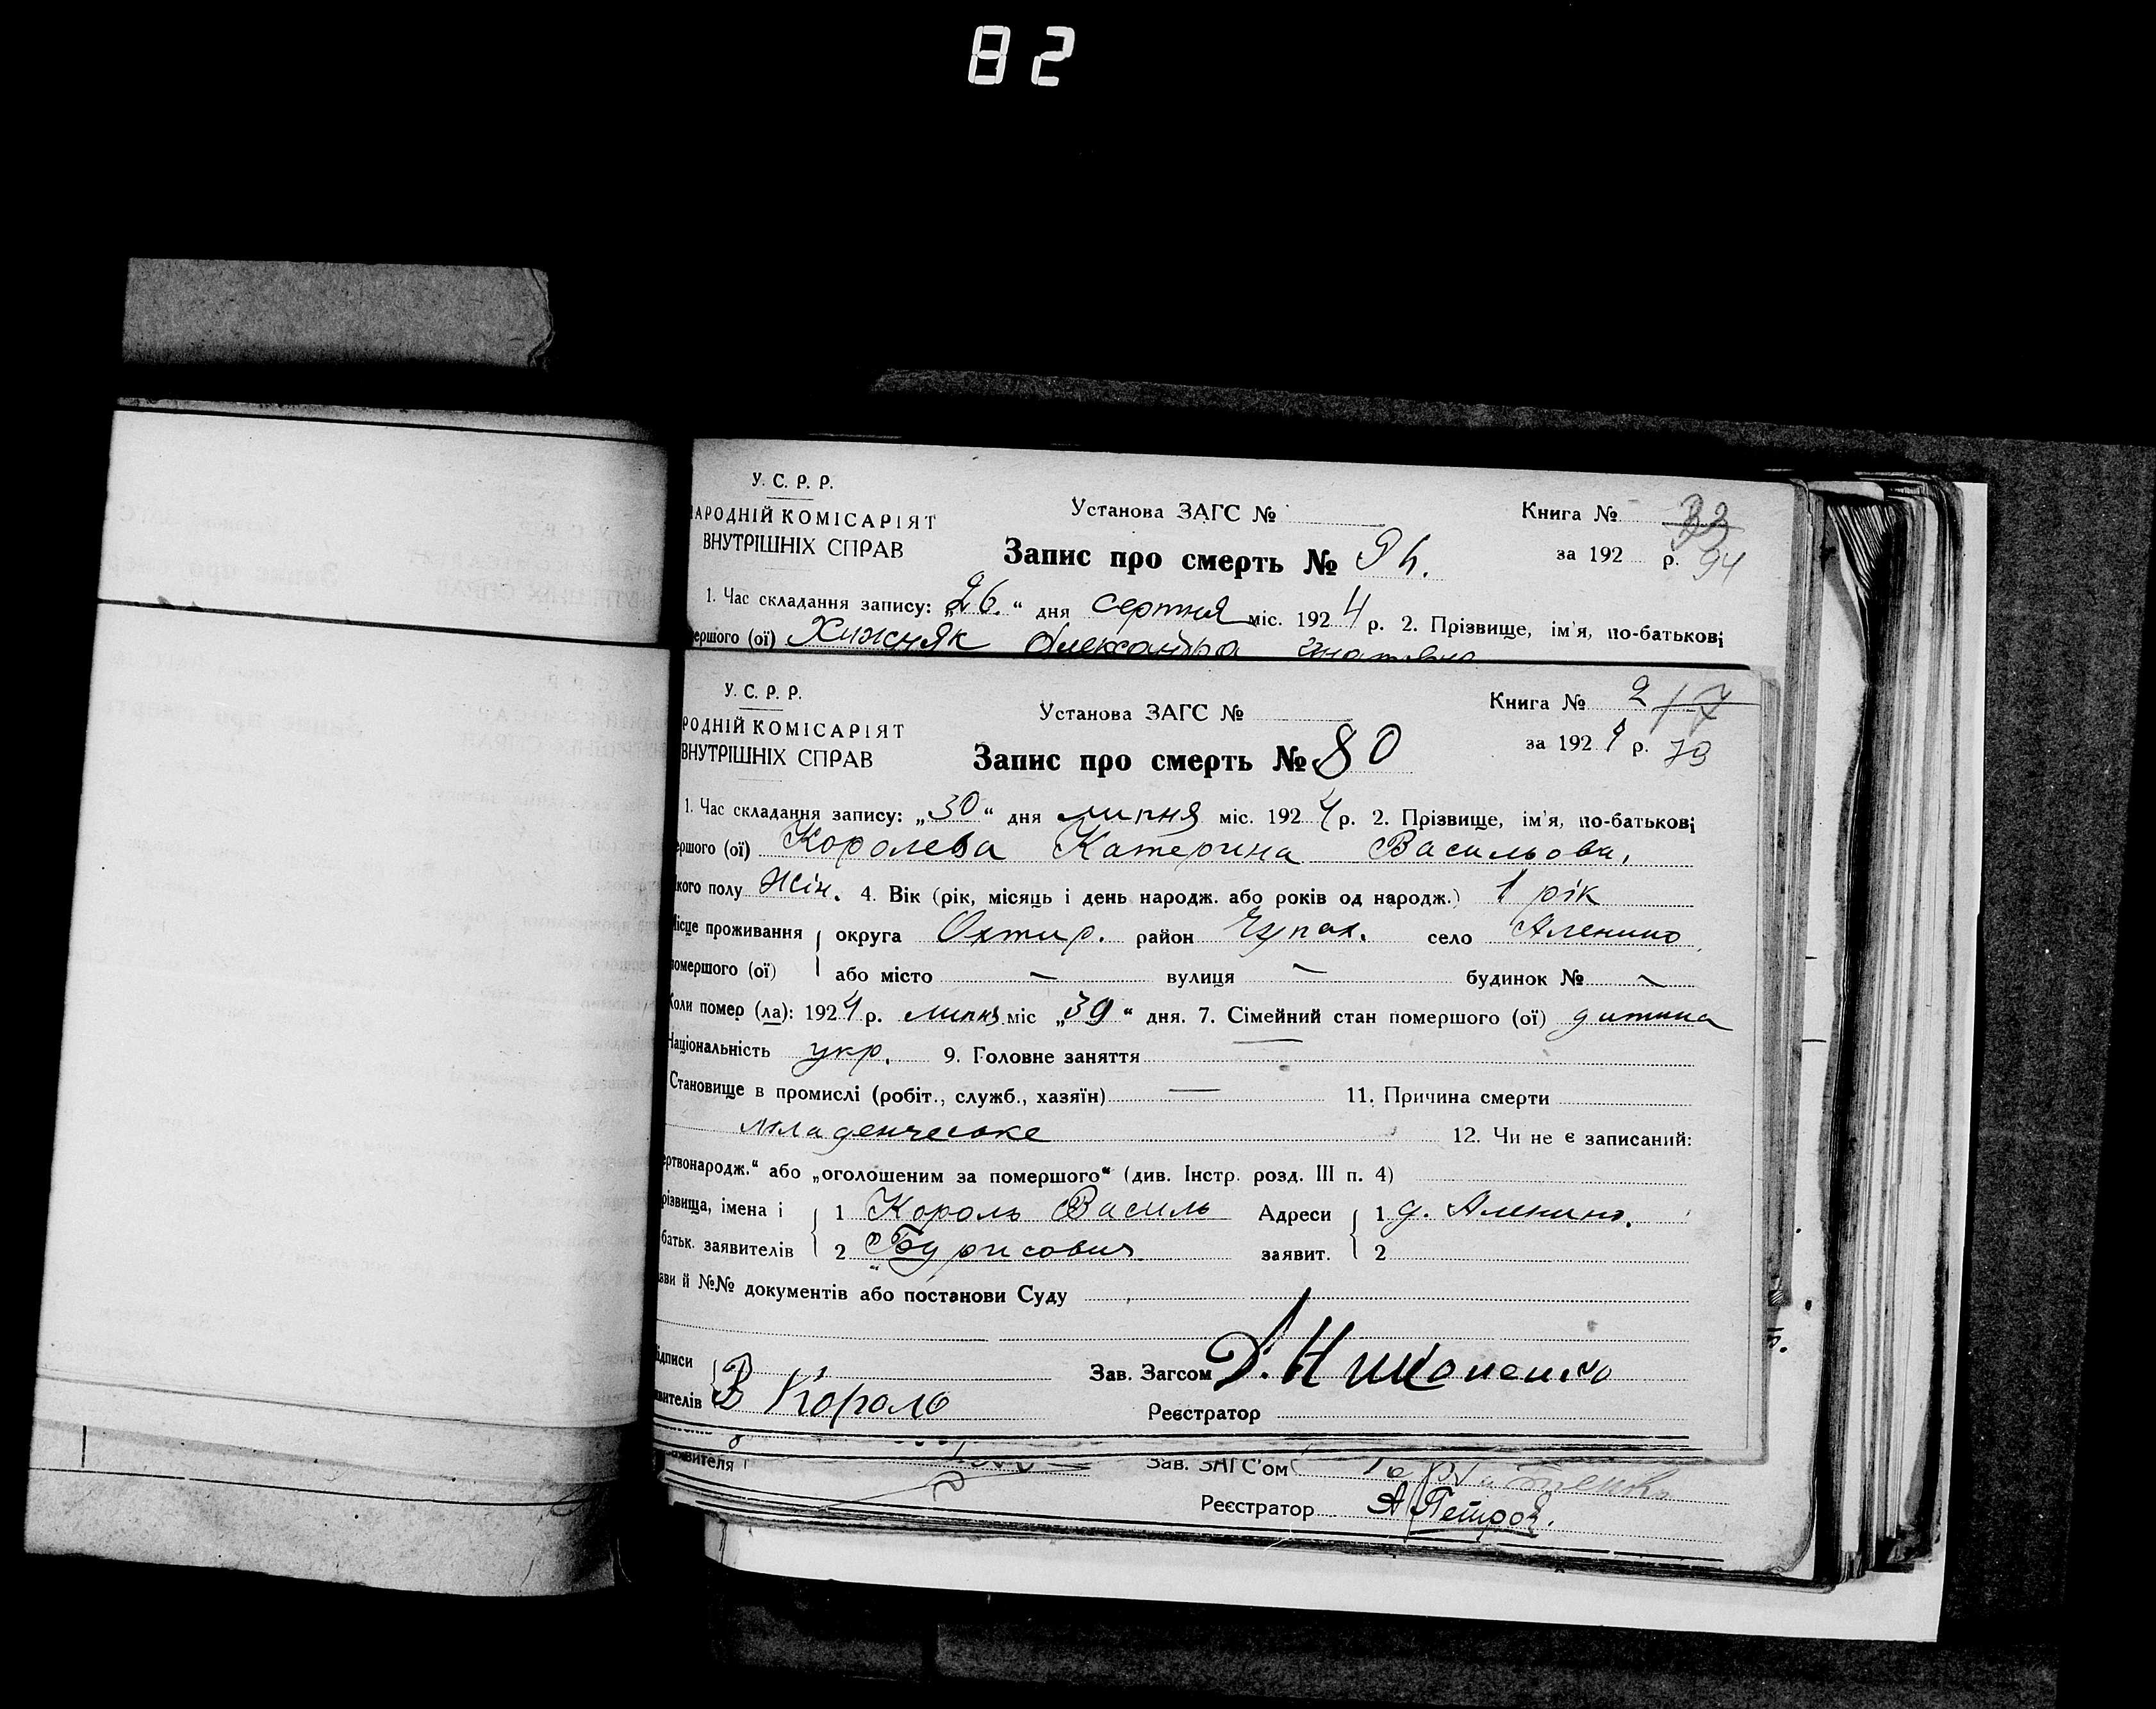 82
У. С. Р. Р.
АРОДНІЙ КОМІСАРІЯТ
ВНУТРІШНІХ СПРАВ
Установа ЗАГС №
Книга № 33
Запис про смерть № 94.
за 192 р. 94
1. Час складання запису: „26.“ дня серпня міс. 1924 р. 2. Прізвище, ім'я, по-батькові
ершого (ої) Хижняк Олександра Гнатівна
У. С. Р. Р.
РОДНІЙ КОМІСАРІЯТ
ВНУТРІШНІХ СПРАВ
Установа ЗАГС №
Книга № 2 17
Запис про смерть № 80
за 1924 р. 79
1. Час складання запису: „30“ дня липня міс. 1924 р. 2. Прізвище, ім'я, по-батькові
ершого (ої) Королева Катерина Васильова,
кого полу жін. 4. Вік (рік, місяць і день народж. або років од народж.) 1 рік
Місце проживання округа Охтир. район Чупах. село Аленино
помершого (ої) або місто — вулиця — будинок № —
Коли помер (ла): 1924 р. липня міс „30“ дня. 7. Сімейний стан помершого (ої) дитина
Національність укр. 9. Головне заняття —
Становище в промислі (робіт., служб., хазяїн) — 11. Причина смерти
младенческе 12. Чи не є записаний:
ертвонародж.“ або „оголошеним за помершого“ (див. Інстр. розд. III п. 4)
різвища, імена і 1 Король Василь Адреси 1 д. Аленино.
батьк. заявителів 2 Борисович заявит. 2
ави й №№ документів або постанови Суду
ідписи
вителів В Король
Зав. Загсом Д. Никоненко
Реєстратор
вителя Зав. ЗАГС'ом
Реєстратор А Петров.